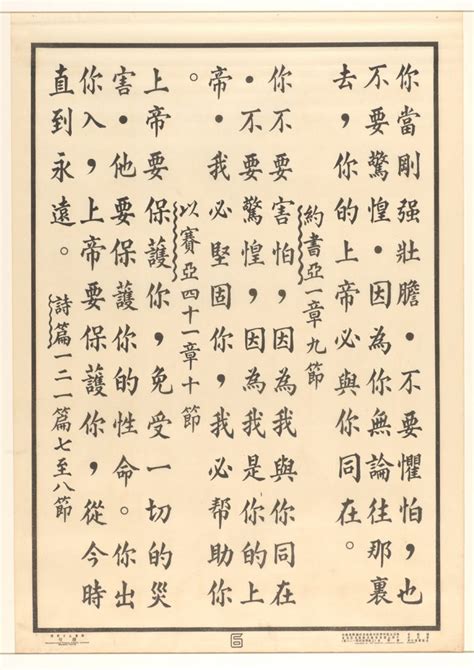 你當剛强壯膽・不要懼怕，也
不要驚惶・因為你無論往那裏
去，你的上帝必與你同在。
約書亞一章九節
你不要害怕，因為我與你同在
・不要驚惶，因為我是你的上
帝・我必堅固你，我必幫助你
。
以賽亞四十一章十節
上帝要保護你，免受一切的災
害・他要保護你的性命。你出
你入，上帝要保護你，從今時
直到永遠。
詩篇一二一篇七至八節
6